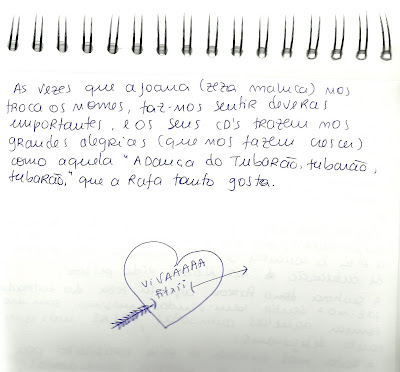 As vezes que a Joana (zeza maluca) nos
troca os nomes, faz-nos sentir deveras
importantes, e os seus CD's trazem nos
grandes alegrias (que nos fazem crescer)
como aquela "A Dança do Tubarão, tubarão,
tubarão," que a Rafa tanto gosta.
VIVAAAAA